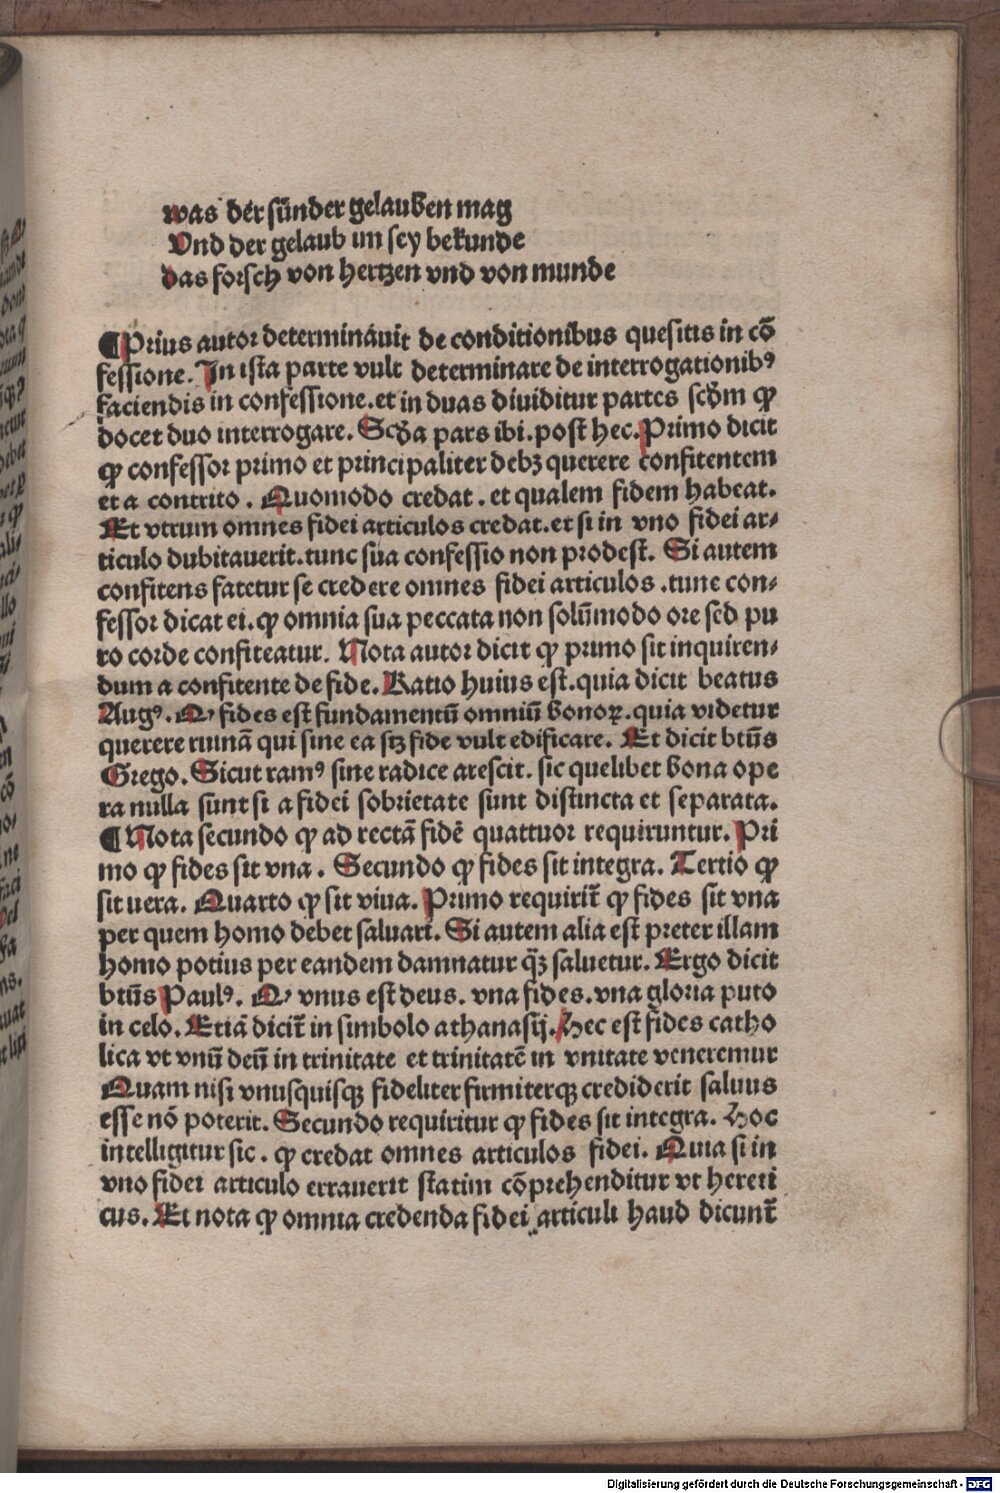 was der sünder gelauben mag
Vnd der gelaub im sey bekunde
das forsch von hertzen vnd von munde
¶Prius autor determinauit de conditionibus quesitis in cō
fessione. In ista parte vult determinare de interrogationibꝰ
faciendis in confessione. et in duas diuiditur partes scḋm ꝙ
docet duo interrogare. Scḋa pars ibi. post hec. Primo dicit
ꝙ confessor primo et principaliter debꝫ querere confitentem
et a contrito. Quomodo credat. et qualem fidem habeat.
Et vtrum omnes fidei articulos credat. et si in vno fidei ar⸗
ticulo dubitauerit. tunc sua confessio non prodest. Si autem
confitens fatetur se credere omnes fidei articulos. tunc con⸗
fessor dicat ei. ꝙ omnia sua peccata non solūmodo ore sed pu
ro corde confiteatur. Nota autor dicit ꝙ primo sit inquiren⸗
dum a confitente de fide. Ratio huius est. quia dicit beatus
Augꝰ. Q, fides est fundamentū omniū bonoꝝ. quia videtur
querere ruinā qui sine ea sꝫ fide vult edificare. Et dicit btūs
Grego. Sicut ramꝰ sine radice arescit. sic quelibet bona ope
ra nulla sunt si a fidei sobrietate sunt distincta et separata.
¶Nota secundo ꝙ ad rectā fidē quattuor requiruntur. Pri
mo ꝙ fides sit vna. Secundo ꝙ fides sit integra. Tertio ꝙ
sit uera. Quarto ꝙ sit viua. Primo requirit̄ ꝙ fides sit vna
per quem homo debet saluari. Si autem alia est preter illam
homo potius per eandem damnatur q̄ꝫ saluetur. Ergo dicit
btūs Paulꝰ. Q, vnus est deus. vna fides. vna gloria puto
in celo. Etiā dicit̄ in simbolo athanasij. Hec est fides catho
lica vt vnū deū in trinitate et trinitatē in vnitate veneremur
Quam nisi vnusquisqꝫ fideliter firmiterqꝫ crediderit saluus
esse nō poterit. Secundo requiritur ꝙ fides sit integra. Hoc
intelligitur sic. ꝙ credat omnes articulos fidei. Quia si in
vno fidei articulo errauerit statim cōprehenditur vt hereti
cus. Et nota ꝙ omnia credenda fidei articuli haud dicunt̄
Digitalisierung gefördert durch die Deutsche Forschungsgemeinschaft - DFG